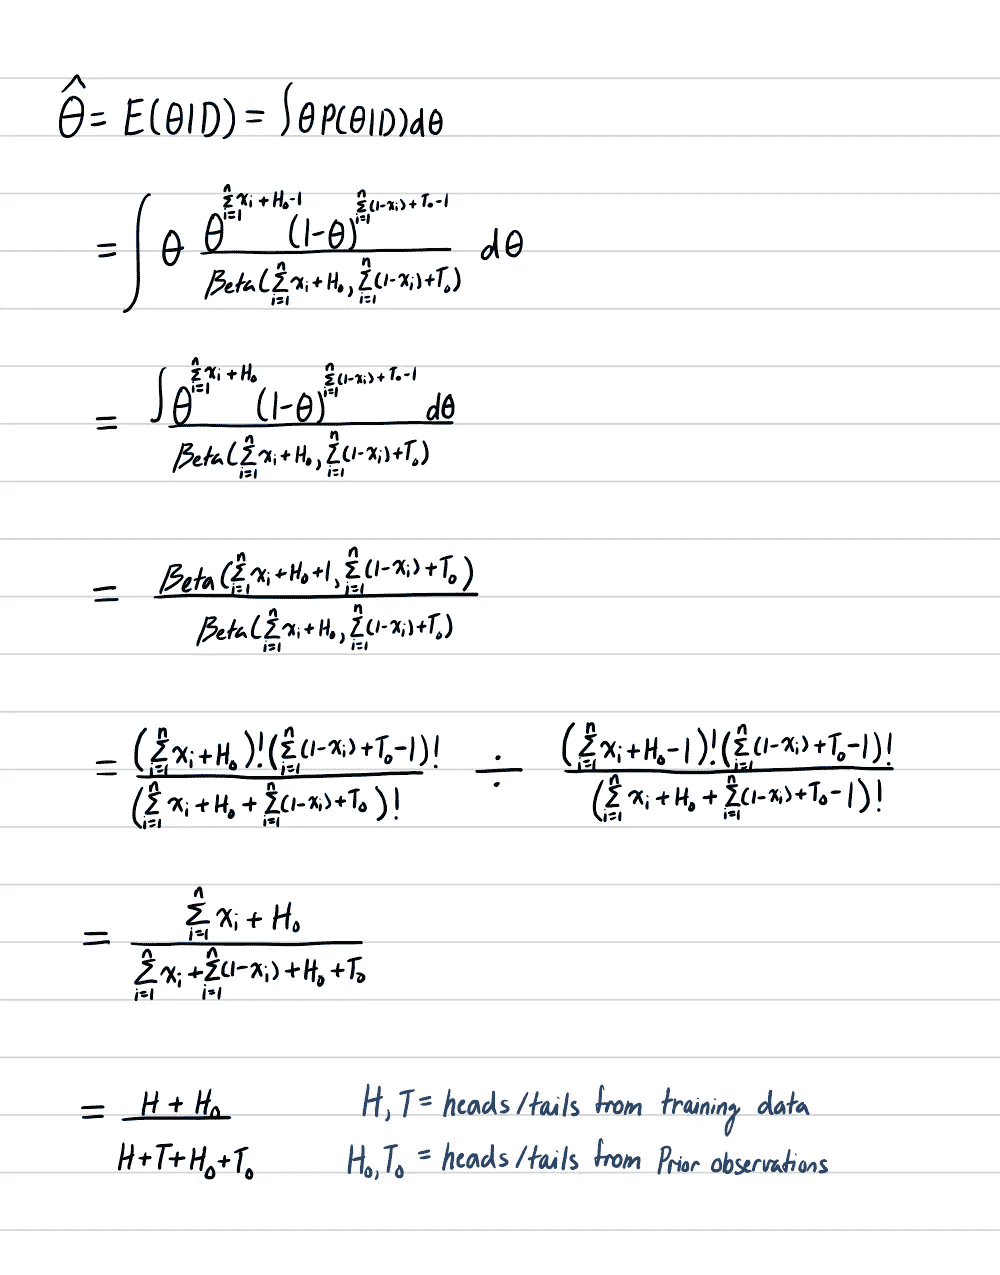 θ̂ = E(θ|D) = ∫θP(θ|D)dθ
= ∫ θ (θ^(∑_{i=1}^{n} x_i + H_0 - 1) (1-θ)^(∑_{i=1}^{n} (1-x_i) + T_0 - 1)) / (Beta(∑_{i=1}^{n} x_i + H_0, ∑_{i=1}^{n} (1-x_i) + T_0)) dθ
= (∫θ^(∑_{i=1}^{n} x_i + H_0) (1-θ)^(∑_{i=1}^{n} (1-x_i) + T_0 - 1) dθ) / (Beta(∑_{i=1}^{n} x_i + H_0, ∑_{i=1}^{n} (1-x_i) + T_0))
= (Beta(∑_{i=1}^{n} x_i + H_0 + 1, ∑_{i=1}^{n} (1-x_i) + T_0)) / (Beta(∑_{i=1}^{n} x_i + H_0, ∑_{i=1}^{n} (1-x_i) + T_0))
= ((∑_{i=1}^{n} x_i + H_0)! (∑_{i=1}^{n} (1-x_i) + T_0 - 1)!) / ((∑_{i=1}^{n} x_i + H_0 + ∑_{i=1}^{n} (1-x_i) + T_0)!) ÷ ((∑_{i=1}^{n} x_i + H_0 - 1)! (∑_{i=1}^{n} (1-x_i) + T_0 - 1)!) / ((∑_{i=1}^{n} x_i + H_0 + ∑_{i=1}^{n} (1-x_i) + T_0 - 1)!)
= (∑_{i=1}^{n} x_i + H_0) / (∑_{i=1}^{n} x_i + ∑_{i=1}^{n} (1-x_i) + H_0 + T_0)
= (H + H_0) / (H + T + H_0 + T_0)
H, T = heads/tails from training data
H_0, T_0 = heads/tails from Prior observations